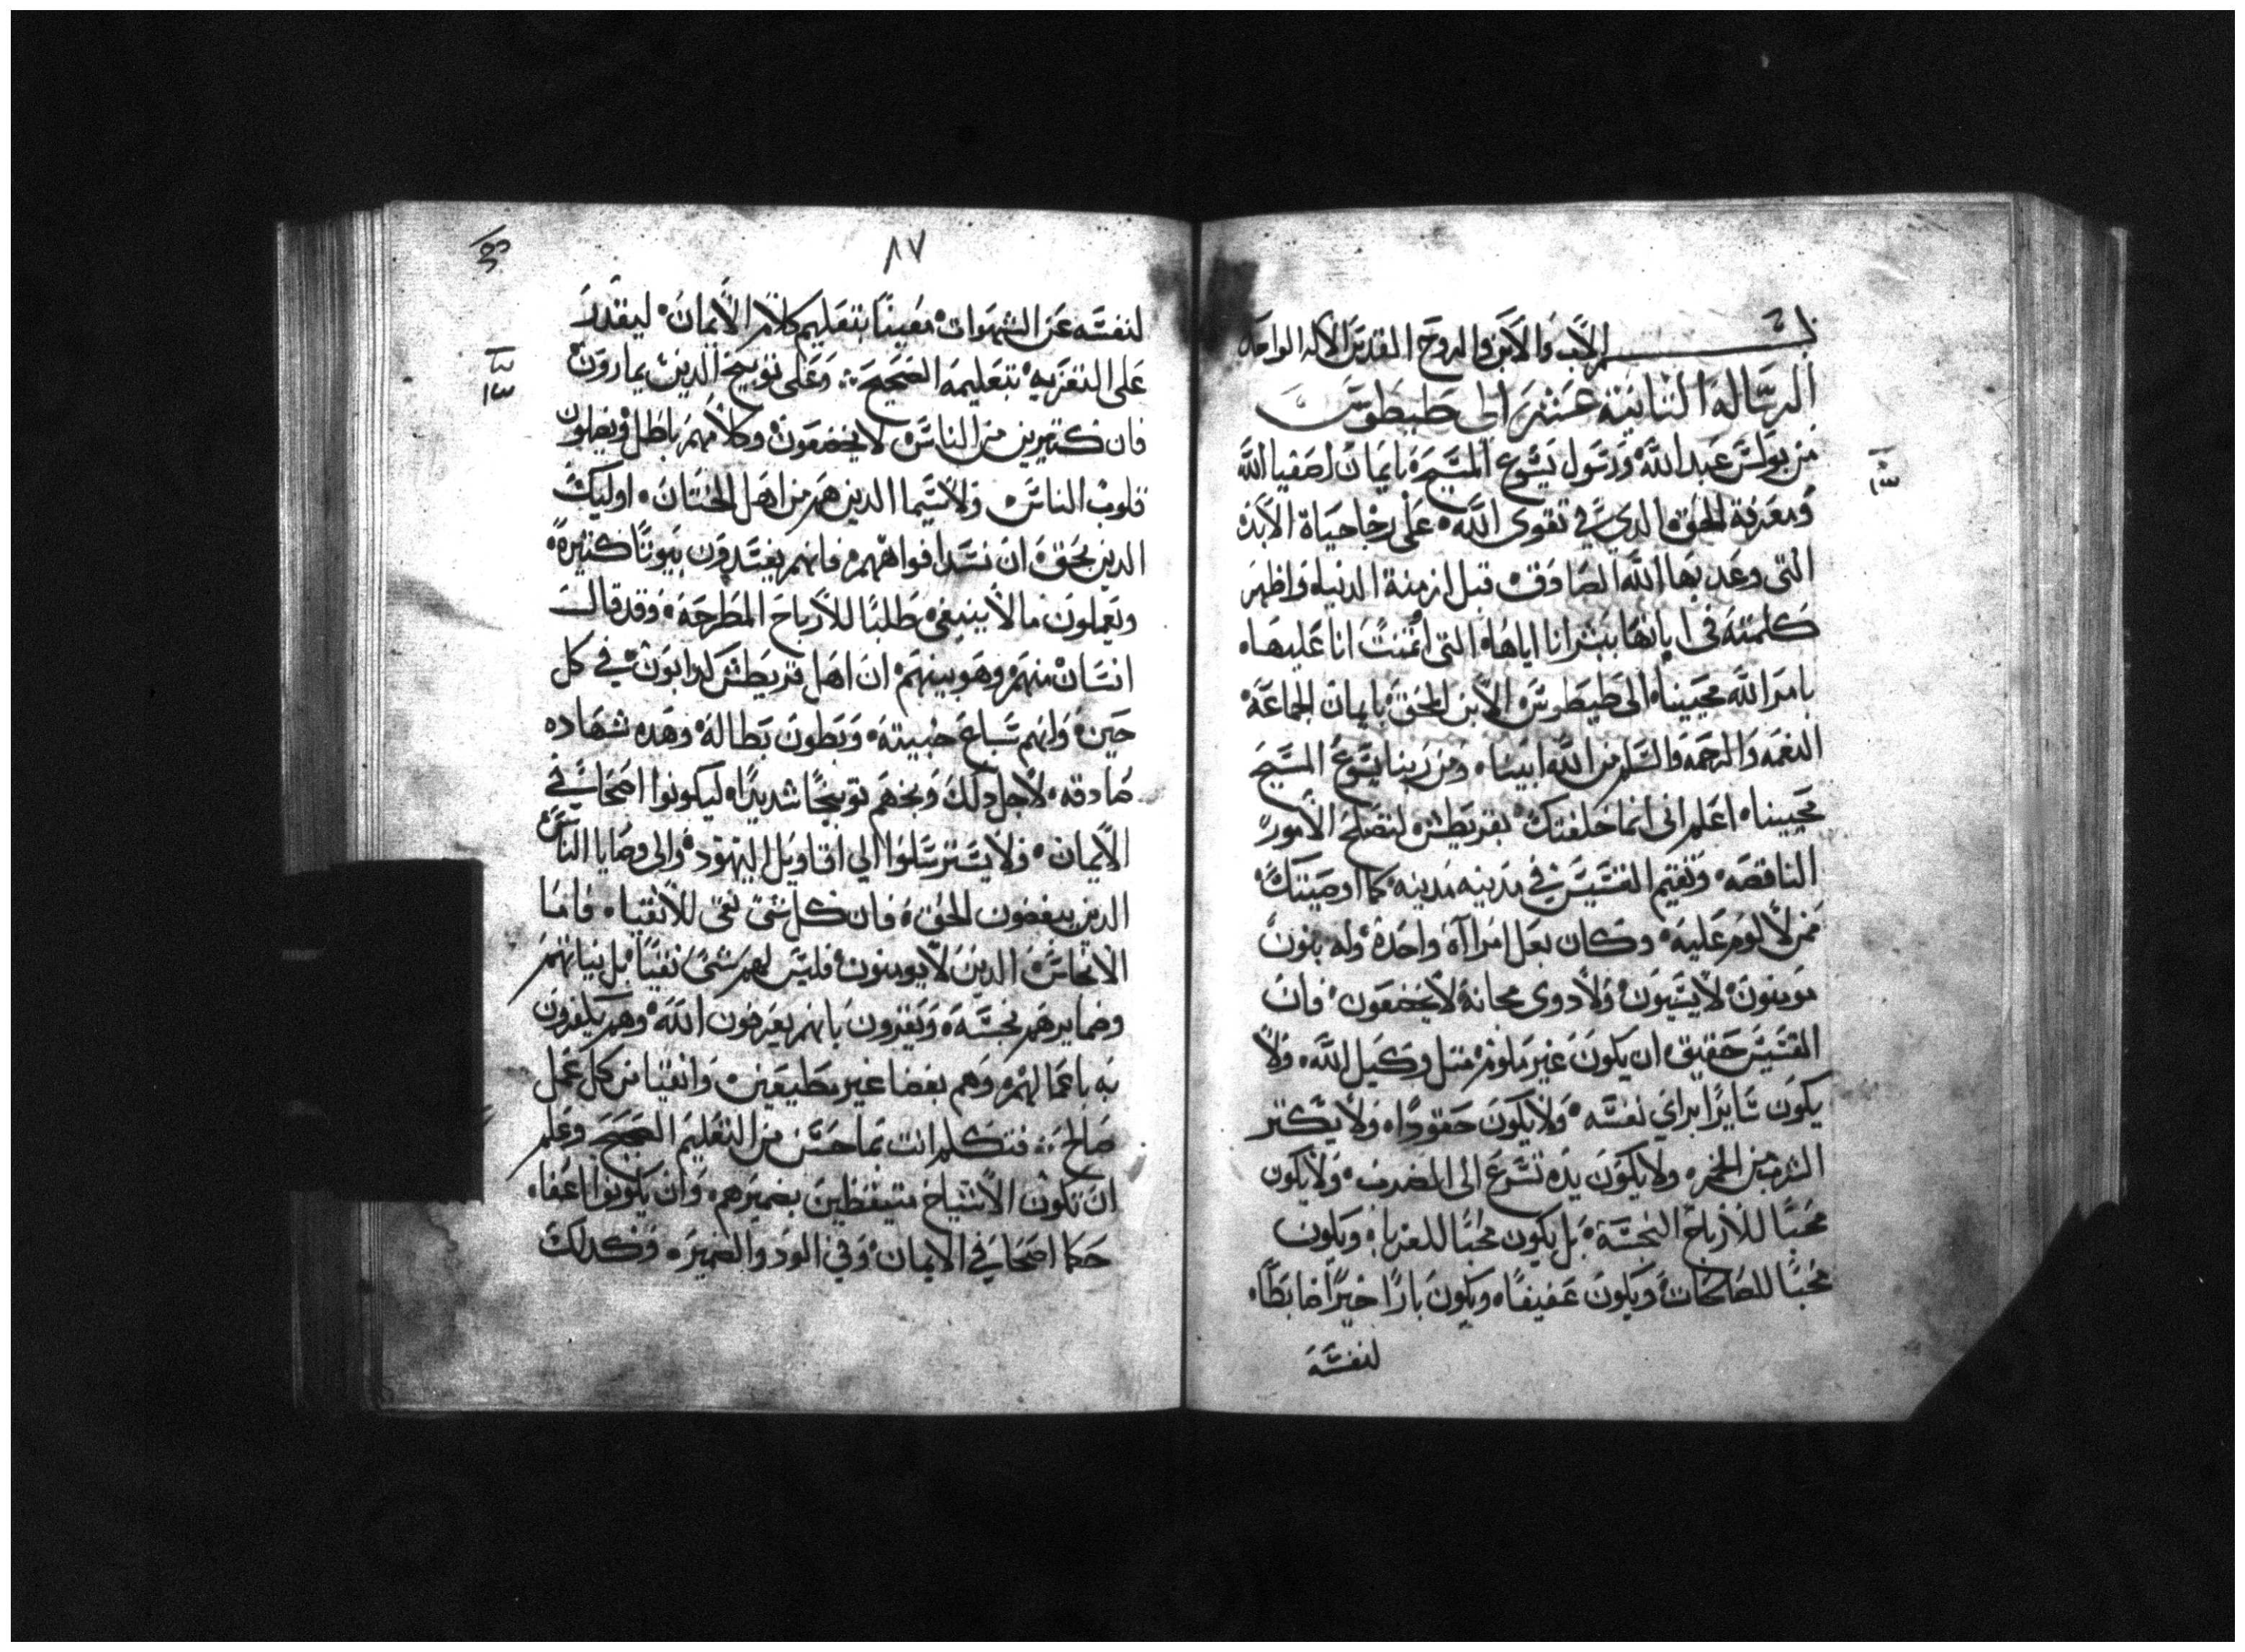 بسم الاب والابن والروح القدس الاله الواحد
الرساله الثانية عشر الى طيطوس
من بولس عبد الله ورسول يسوع المسيح بايمان اصفيا الله
ومعرفة الحق الذي في تقوى الله على رجا حياة الابد
التى وعد بها الله الصادق قبل ازمنة الدنيا واظهر
كلمته فى ابانها ببشرانا اياها التى اتمنت انا عليها
بامر الله محيينا الى طيطوس الابن المحق بايمان الجماعة
النعمه والرحمه والسلم من الله ابينا ومن ربنا يسوع المسيح
محيينا اعلم انى انما خلفتك بقريطش لتصلح الامور
الناقصه وتقيم القسيس في مدينه مدينه كما اوصيتك
من لا لوم عليه وكان بعل امراآة واحدة وله بنون
مومنون لا يسبون ولا دوى مجانة لا يخضعون فان
القسيس حقيق ان يكون غير ملوم مثل وكيل الله ولا
يكون سايرا براى نفسه ولا يكون حقودا ولا يكثر
الشرب من الخمر ولا يكون يده تسرع الى الضرب ولا يكون
محبا للارباح النجسة بل يكون محبا للغربا ويكون
محبا للصالحات ويكون عفيفا ويكون بارا خيرا ضابطا
لنفسه
٨٧
لنفسه عن الشهوات معينا بتعليم كلام الايمان ليقدر
على التعزيه بتعليمه الصحيح وعلى توبيخ الدين يمارون
فان كثيرين من الناس لا يخضعون وكلامهم باطل ويضلون
قلوب الناس ولا سيما الدين هم من اهل الختان اوليك
الدين يحق ان تسد افواههم فانهم يفسدون بيوتا كثيرة
ويعملون ما لا ينبغى طلبا للارباح المطرحة وقد قال
انسان منهم وهو بينهم ان اهل قريطش كدابون في كل
حين وانهم سباع خبيثه وبطون بطالة وهده شهاده
صادقه لاجل دلك وبخهم توبيخا شديدا ليكونوا اصحا في
الايمان ولا يسترسلوا الى اقاويل اليهود والى وصايا الناس
الدين يبغضون الحق فان كل شى نقى للانقيا فاما
الانجاس الدين لا يومنون فليس لهم شى نقيا بل نياتهم
وضمايرهم نجسة ويقرون بانهم يعرفون الله وهم يكفرون
به باعمالهم وهم بغضا غير مطيعين وانقيا من كل عمل
صالح فتكلم انت بما حسن من التعليم الصحيح وعلم
ان تكون الاشياخ متيقظين بضميرهم وان يكونوا اعفا
حكما اصحا في الايمان وفي الود والصبر وكدلك